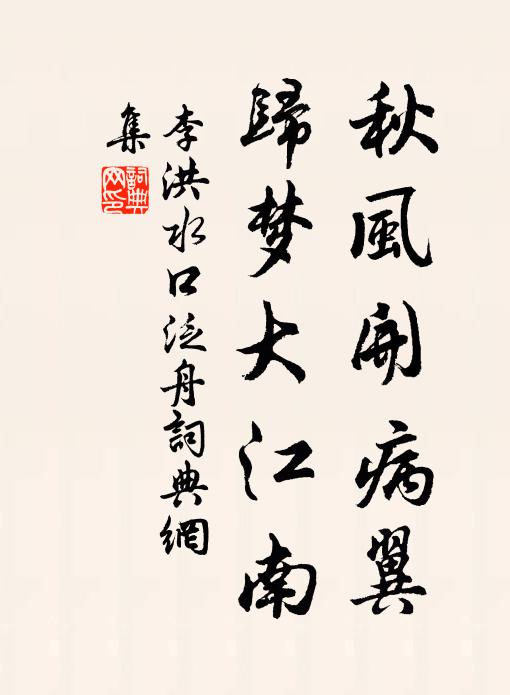 秋風開病翼
歸梦大江南
李洪水口泛舟詞典網
集
詞典網印